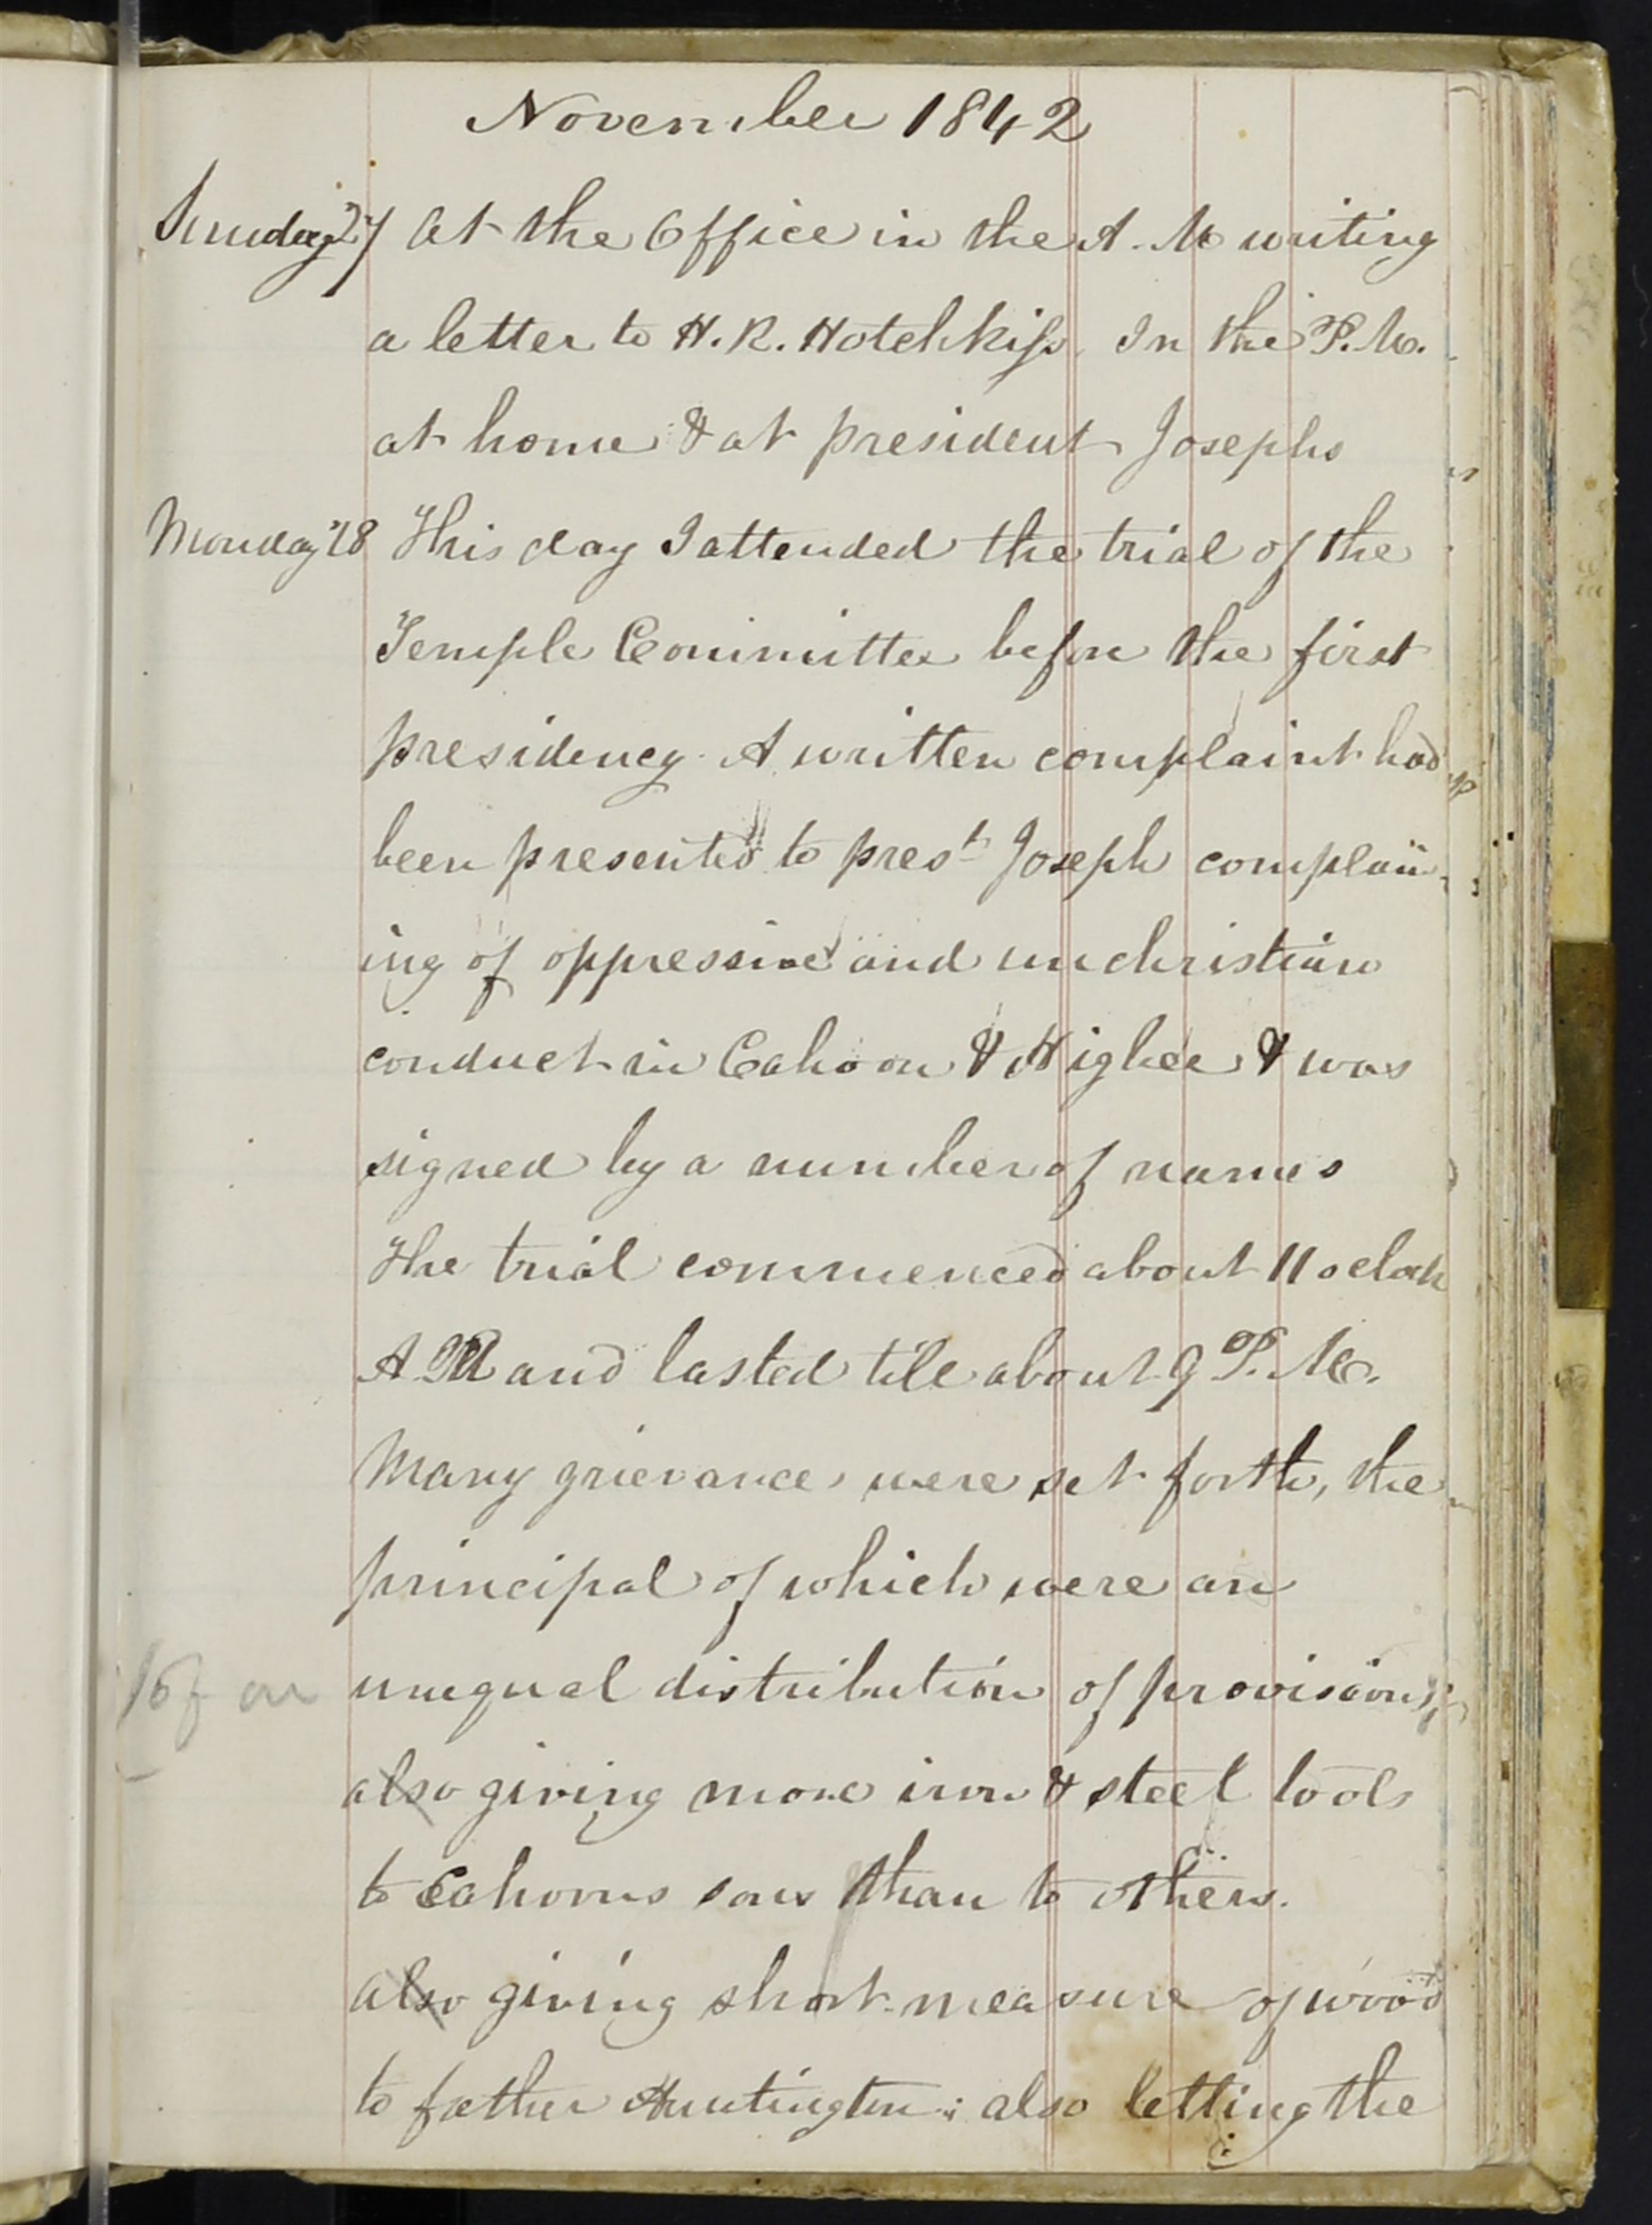 November 1842
Sunday 27 At the Office in the A. M writing
a letter to H. R. Hotchkiss. In the P. M.
at home & at president Josephs
Monday 28 This day I attended the trial of the
Temple Committee before the first
presidency. A written complaint had
been presented to prest Joseph complain-
ing of oppressive and unchristian
conduct in Cahoon & Higbee & was
signed by a number of names
The trial commenced about 11 oclock
A. M and lasted till about 9 P. M.
Many grievances were set forth, the
principal of which were an
unequal distribution of provisions;
also giving more iron & steel tools
to Cahoons sons than to others.
also giving short measure of wood
to father Huntington; also letting the